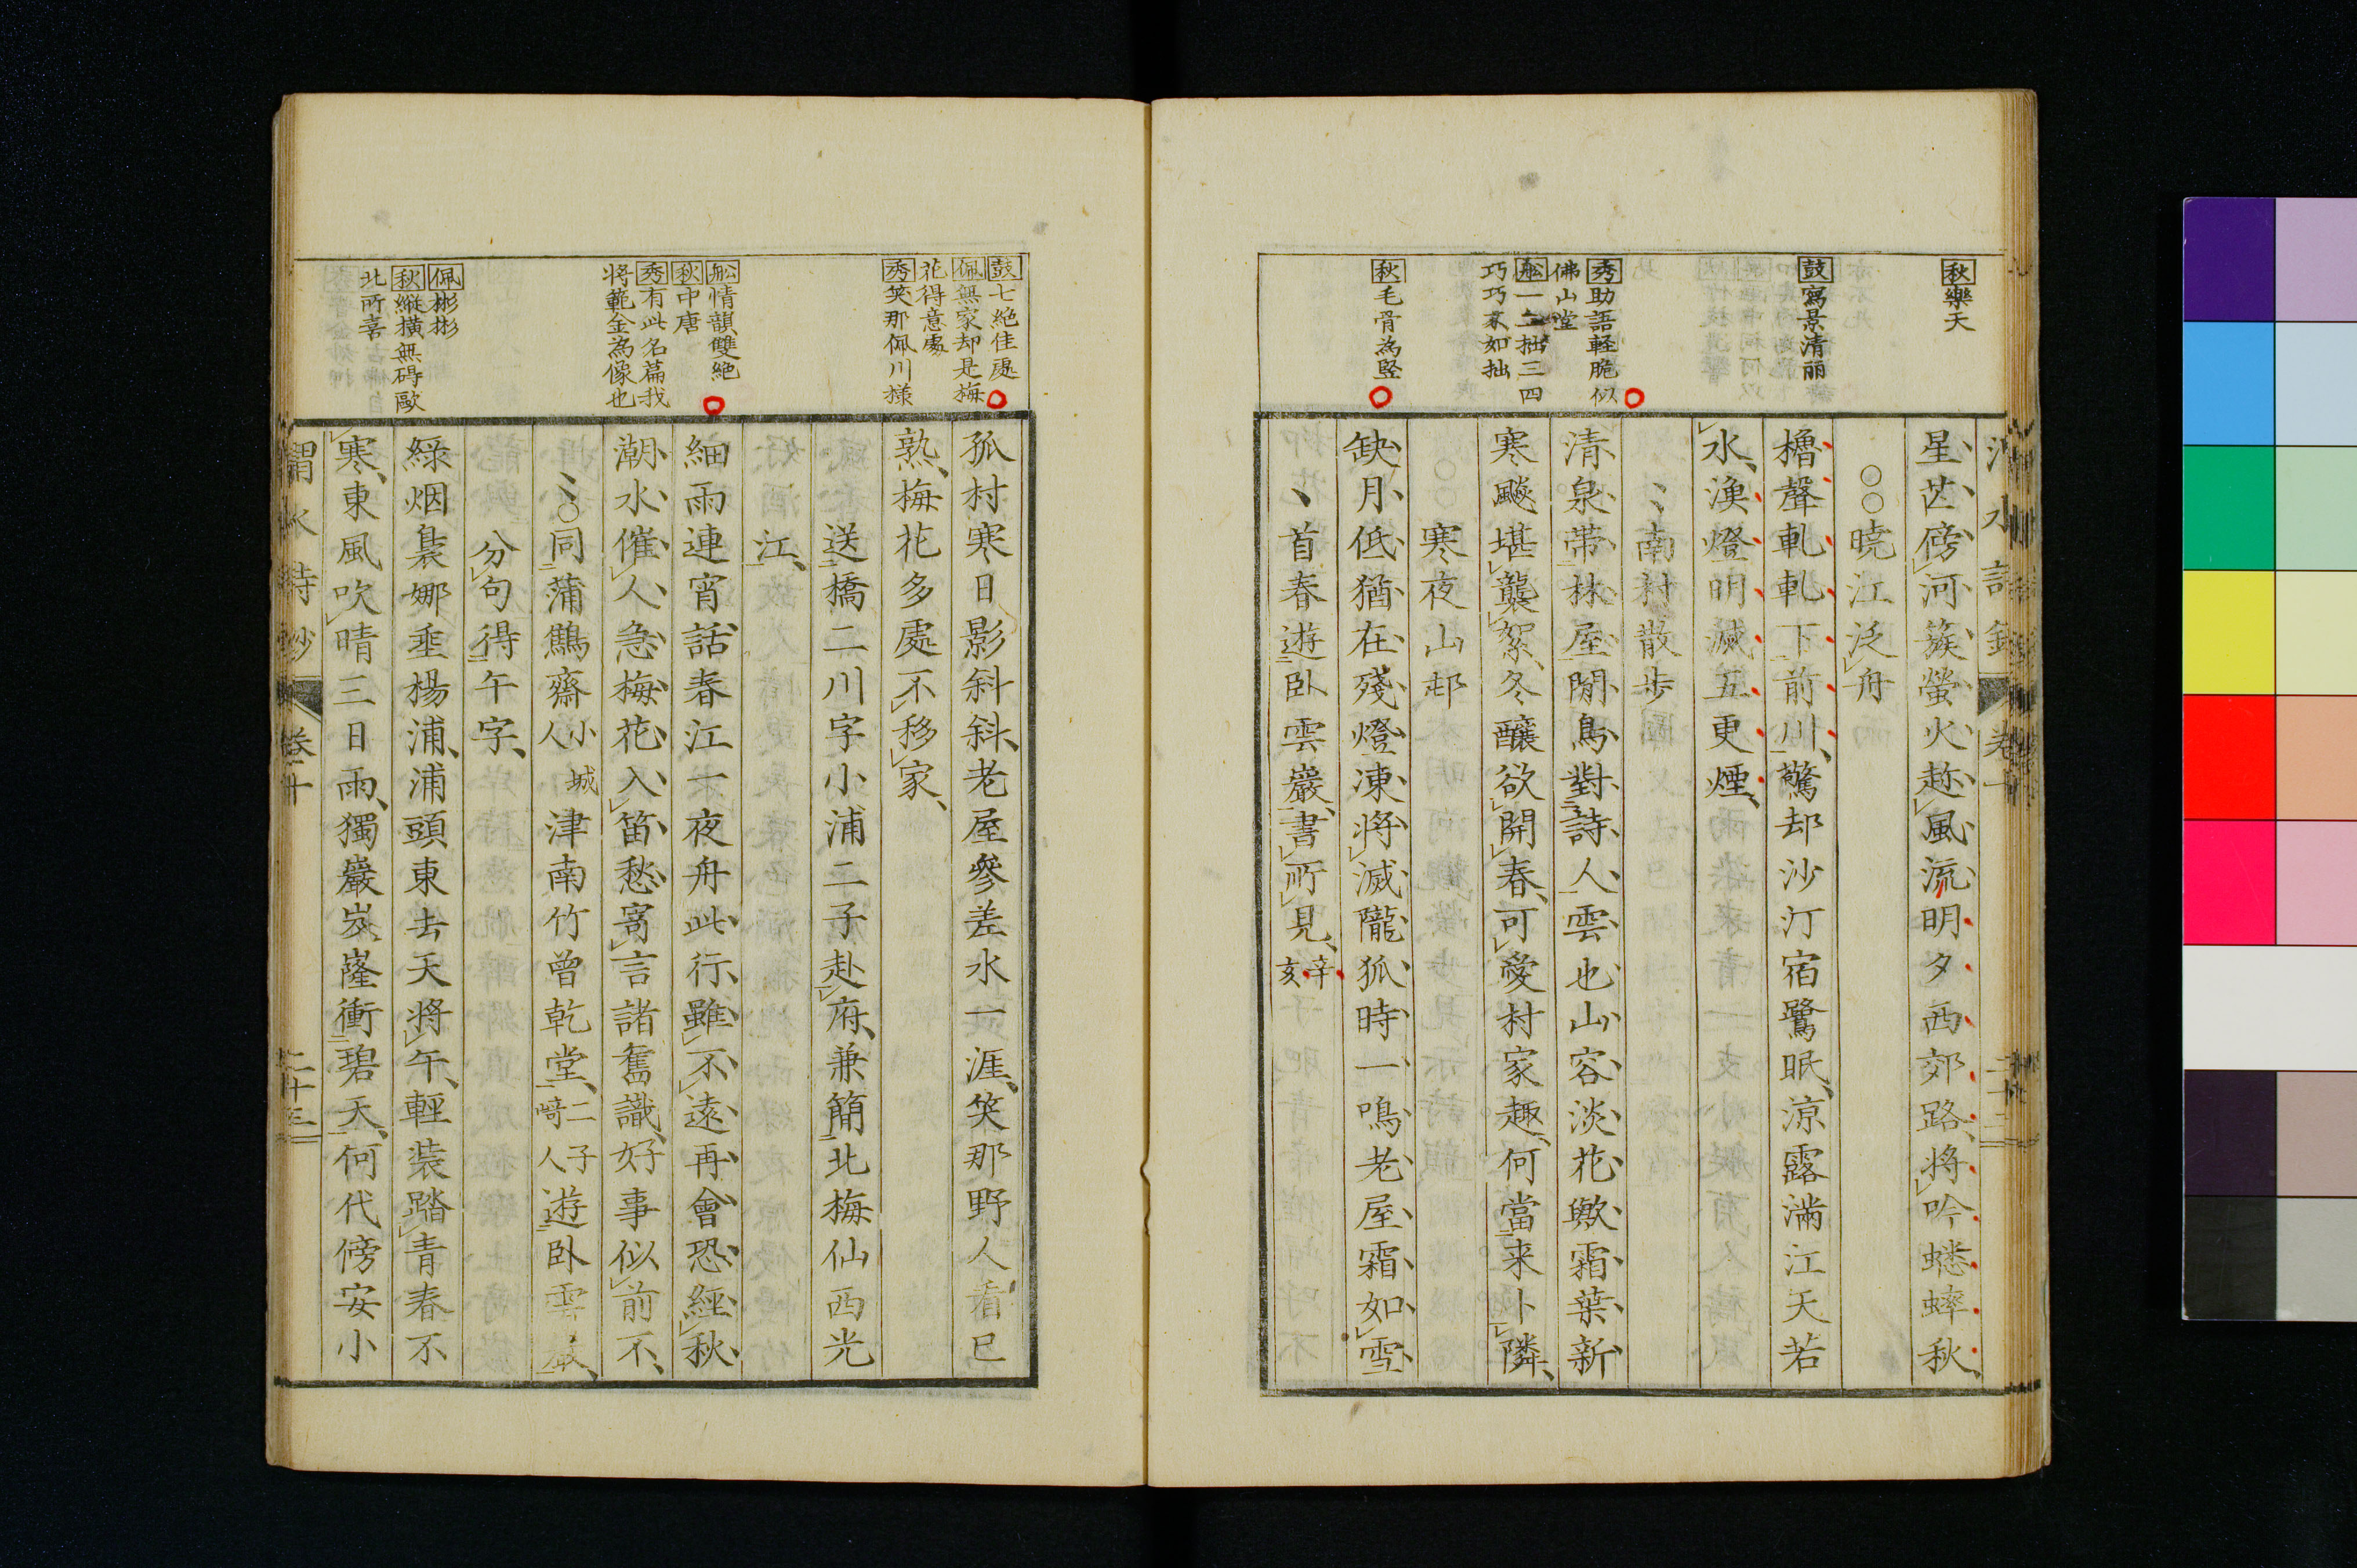 秋樂天
鼓寫景清丽
秀助語軽脆似
佛山堂
舩一二拙三四
巧巧不如拙
秋毛骨為竪
星芒傍河簇螢火趂風流明夕西郊路将吟蟋蟀秋
○○暁江泛舟
櫓聲軋軋下前川驚却沙汀宿鷺眠凉露滿江天若
水漁燈明滅五更煙
南村散歩
清泉帯林屋閒鳥對詩人雲也山容淡花歟霜葉新
寒颷堪襲絮冬釀欲開春可愛村家趣何當来卜隣
寒夜山邨
缺月低猶在殘燈凍将滅隴狐時一鳴老屋霜如雪
首春遊卧雲巖書所見辛亥
鼓七絶佳處
佩無家却是梅
花得意處
秀笑那佩川様
舩情韻雙絶
秋中唐
秀有此名篇我
将範金為像也
佩彬彬
秋縱横無碍歐
北所喜
孤村寒日影斜斜老屋參差水一涯笑那野人看已
熟梅花多處不移家
送橋二川字小浦二子赴府兼簡北梅仙西光
江
細雨連宵話春江一夜舟此行雖不遠再會恐經秋
潮水催人急梅花入笛愁寄言諸舊識好事似前不
○同蒲鷦齋小城人津南竹曾乾堂二子﨑人遊卧雲巖
分句得午字
綠烟裊娜垂楊浦浦頭東去天将午輕装踏青春不
寒東風吹晴三日雨獨巖岌嶐衝碧天何代傍安小
卷十
二十三